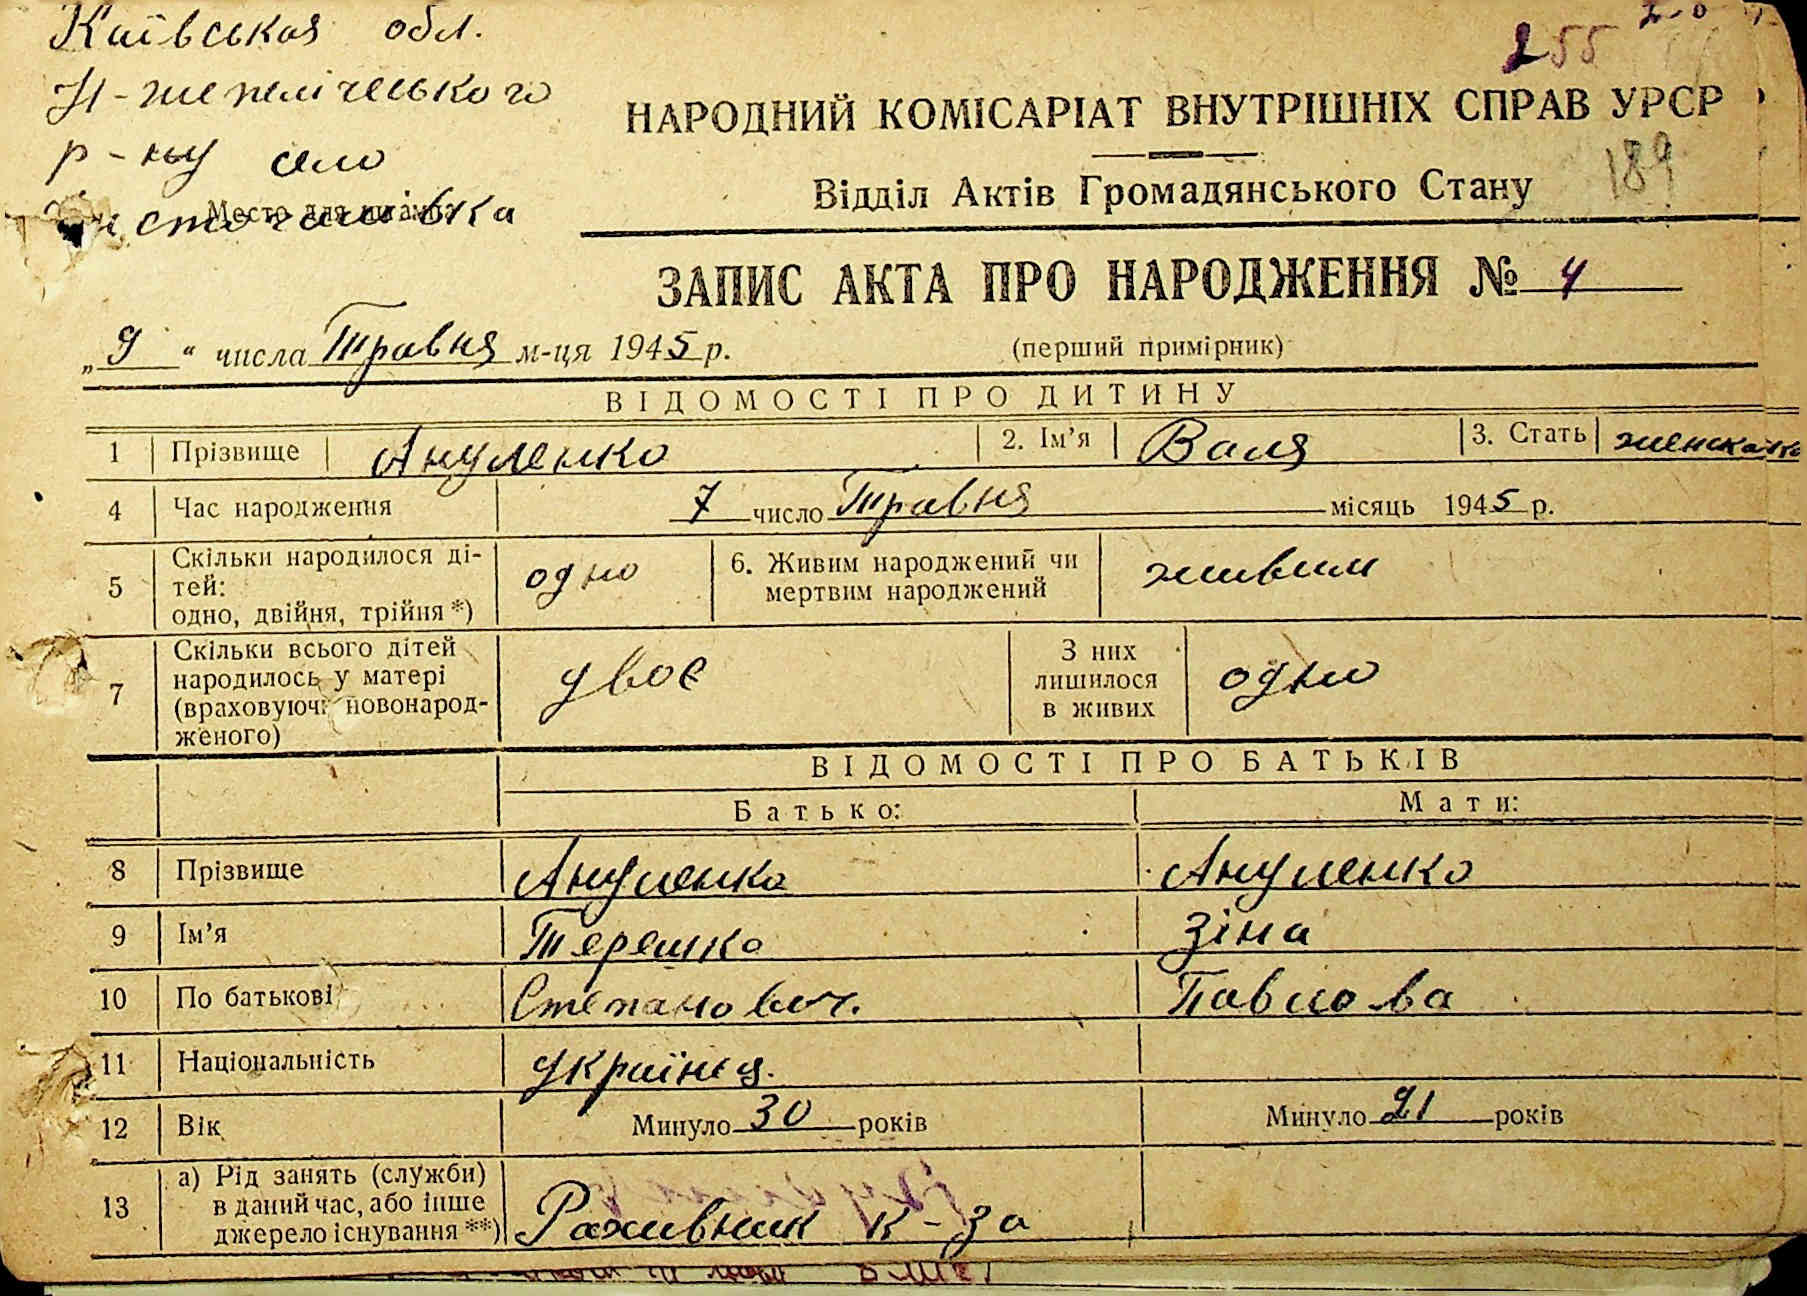 Київская обл.
Н-шепелічеського
р-ну село
Чистогаловка
Место для штампа
255
189
НАРОДНИЙ КОМІСАРІАТ ВНУТРІШНІХ СПРАВ УРСР
Відділ Актів Громадянського Стану
ЗАПИС АКТА ПРО НАРОДЖЕННЯ № 4
„9“ числа Травня м-ця 1945 р.
(перший примірник)
ВІДОМОСТІ ПРО ДИТИНУ
1 Прізвище Ануленко 2. Ім’я Валя 3. Стать
4 Час народження 7 число Травня місяць 1945 р.
5 Скільки народилося ді-
тей:
одно, двійня, трійня *) одно
6. Живим народжений чи
мертвим народжений живим
7 Скільки всього дітей
народилось у матері
(враховуючи новонарод-
женого) двоє
З них
лишилося
в живих одно
ВІДОМОСТІ ПРО БАТЬКІВ
Батько: Мати:
8 Прізвище Ануленко Ануленко
9 Ім’я Терешко Зіна
10 По батькові Степанович. Павлова
11 Національність українця.
12 Вік Минуло 30 років Минуло 21 років
13 а) Рід занять (служби)
в даний час, або інше
джерело існування **) Рахивник к-за